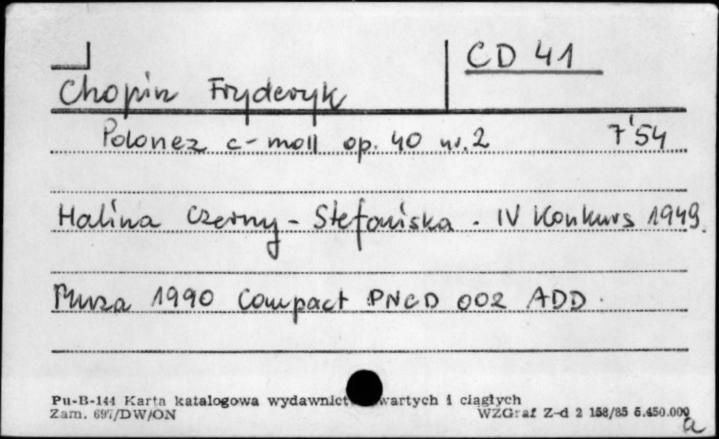 CD 41
Chopin Fryderyk
Polonez c-moll op. 40 nr. 2 7'54
Halina Czerny-Stefańska. IV Konkurs 1949.
Muza 1990 Compact PNCD 002 ADD.
Pu-B-144 Karta katalogowa wydawnict wartych i ciągłych
Zam. 697/DW/ON WZGraf Z-d 2 158/85 5.450.000
a